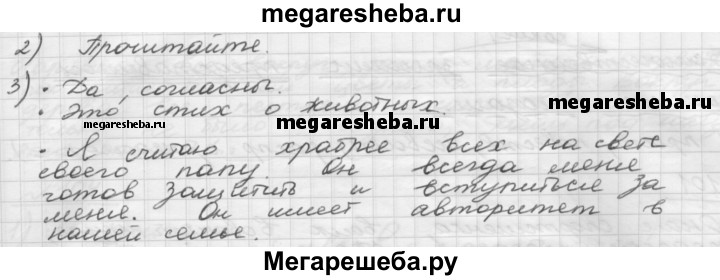 megaresheba.ru
2) Прочитайте.
3) • Да, согласны.
• Это стих о животных.
megaresheba.ru
megaresheba.ru
megaresheba.ru
• Я считаю храбрее всех на свете
своего папу. Он всегда меня
готов защитить и вступиться за
меня. Он имеет авторитет в
нашей семье.
Мегарешеба.ру